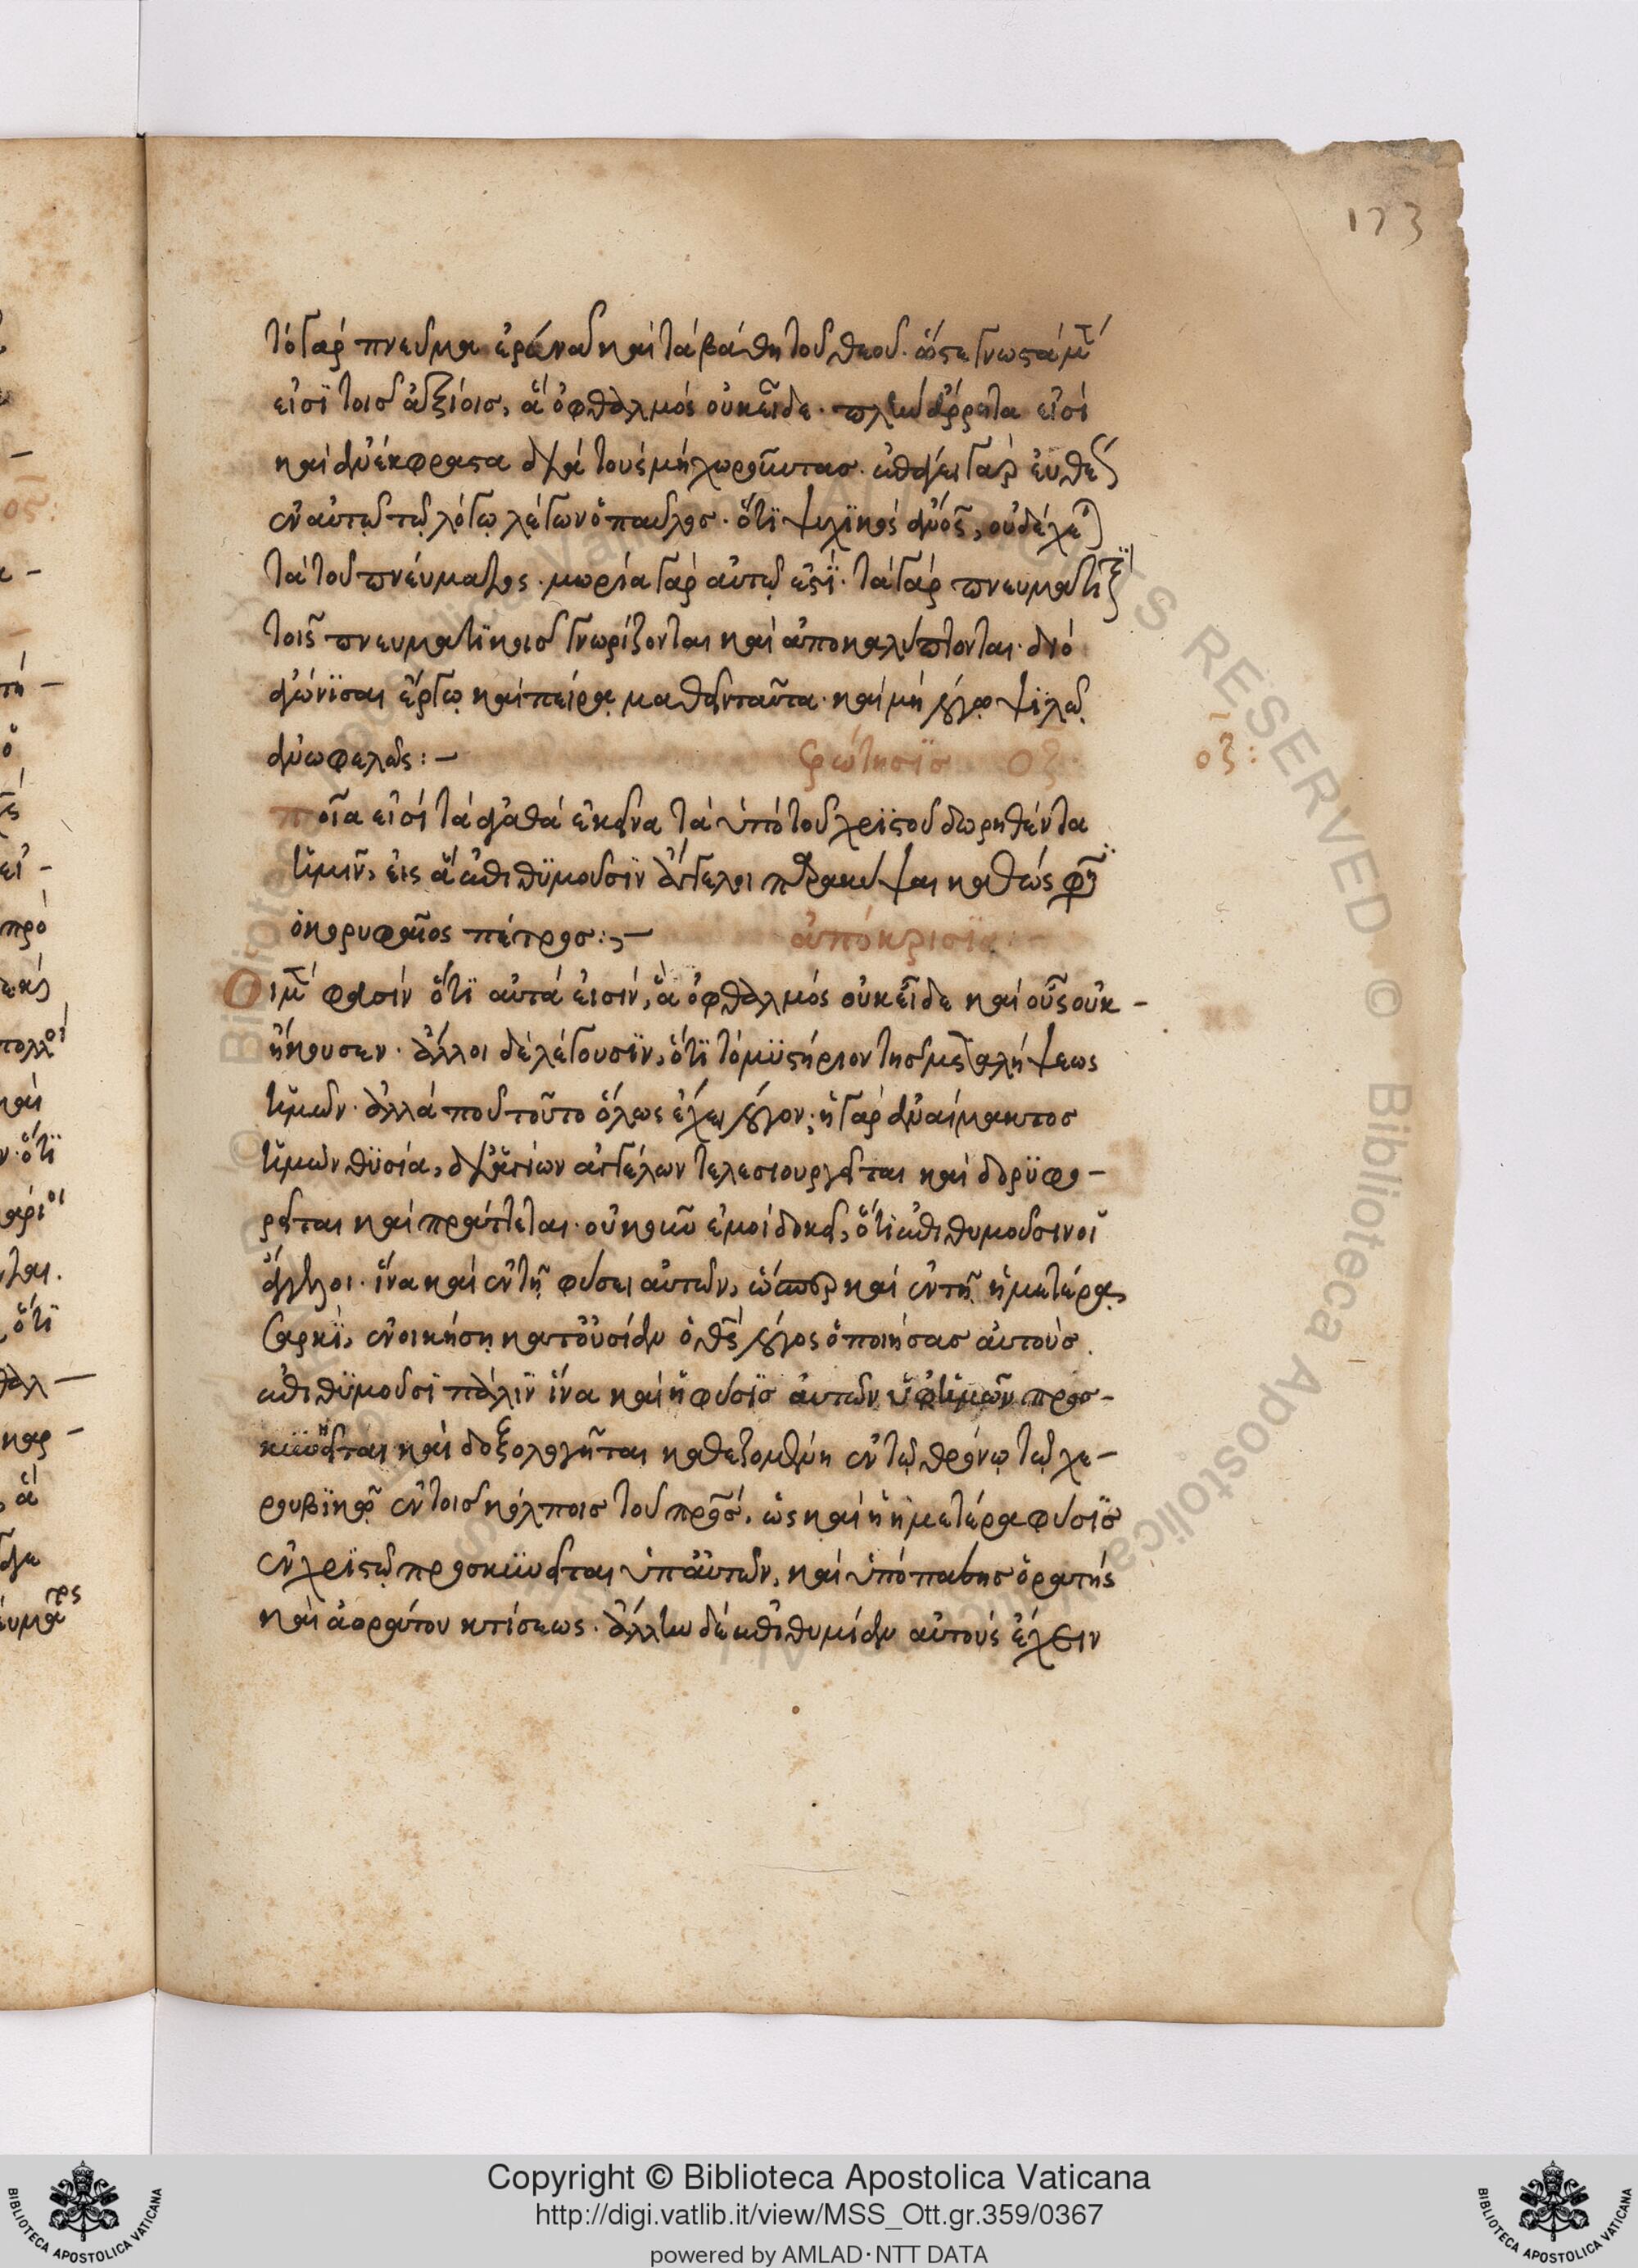 173
τὸ γὰρ πνεῦμα ἐρευνᾶ καὶ τὰ βάθη τοῦ θεοῦ. ὥστε γνωστὰ μ(ὲν)
εἰσὶ τοῖσ ἀξίοισ, ἃ ὀφθαλμὸς οὐκ εἶδε. πλὴν ἄρρητα εἰσὶ
καὶ ἀνέκφραστα διὰ τοὺς μὴ χωροῦντασ. ἐπάγει γὰρ εὐθὺς
ἐν αὐτῷ τῷ λόγῳ λέγων ὁ παῦλοσ. ὅτι ψυχικὸς ἄνος, οὐ δέχεται
τὰ τοῦ πνεύματος. μωρία γὰρ αὐτῷ ἐστί. τὰ γὰρ πνευματικὰ
τοῖς πνευματικοῖσ γνωρίζονται καὶ ἀποκαλύπτονται. διὸ
ἀγώνισαι ἔργῳ καὶ πείρᾳ μαθεῖν ταῦτα. καὶ μὴ λόγῳ ψιλῷ
ἀνωφελῶς:—
ἐρώτησισ οζ
οζ:
ποῖα εἰσὶ τὰ ἀγαθὰ ἐκεῖνα τὰ ὑπὸ τοῦ χριστοῦ δωρηθέντα
ἡμῖν, εἰς ἃ ἐπιθυμοῦσιν ἄγγελοι παρακύψαι καθώς φησιν
ὁ κορυφαῖος πέτροσ:,—
ἀπόκρισισ:—
Οἱ μ(ὲν) φασὶν ὅτι αὐτά εἰσιν, ἃ ὀφθαλμὸς οὐκ εἶδε καὶ οὖς οὐκ -
ἤκουσεν. ἄλλοι δὲ λέγουσιν, ὅτι τὸ μυστήριον τῆσ μεταλήψεως
ἡμῶν. ἀλλά που τοῦτο ὅλως ἔχει λόγον; ἡ γὰρ ἀναίμακτοσ
ἡμῶν θυσία, δι' ἁγίων ἀγγέλων τελεσιουργεῖται καὶ δορυφο-
ρεῖται καὶ πράττεται. οὐκοῦν ἐμοὶ δοκεῖ, ὅτι ἐπιθυμοῦσιν οἱ
ἄγγελοι. ἵνα καὶ ἐν τῇ φύσει αὐτῶν, ὥσπερ καὶ ἐν τῇ ἡμετέρᾳ
σαρκὶ, ἐνοικήσῃ κατ' οὐσίαν ὁ θ(εὸ)ς λόγος ὁ ποιήσασ αὐτούσ.
ἐπιθυμοῦσι πάλιν ἵνα καὶ ἡ φύσισ αὐτῶν ὑφ' ἡμῶν προσ-
κυνῆται καὶ δοξολογῆται καθεζομένη ἐν τῷ θρόνῳ τῷ χε-
ρουβικῷ ἐν τοῖσ κόλποισ τοῦ πρσ, ὡς καὶ ἡ ἡμετέρα φύσισ
ἐν χριστῷ προσκυνεῖται ὑπ' αὐτῶν, καὶ ὑπὸ πάσησ ὁρατῆς
καὶ ἀοράτου κτίσεως. ἄλλην δὲ ἐπιθυμίαν αὐτοὺς ἔχειν
Copyright © Biblioteca Apostolica Vaticana
http://digi.vatlib.it/view/MSS_Ott.gr.359/0367
powered by AMLAD·NTT DATA